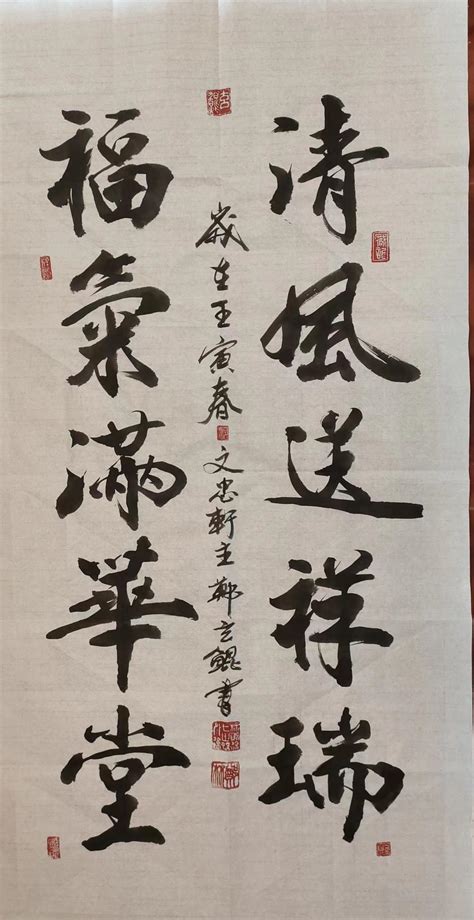 清風送祥瑞
歲在壬寅春 文忠軒主鄭立鯤書
福氣滿華堂